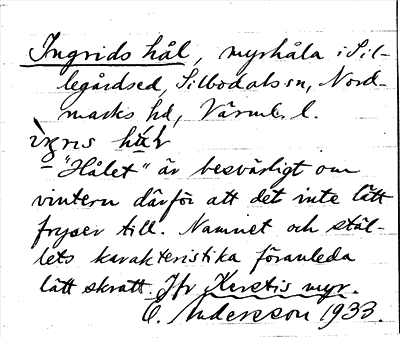 Ingrids hål, myrhåla i Sil-
legårdsed, Silbodals sn, Nord-
marks hd, Värml. l.
ìŋrıs hɑ̀l
– "Hålet" är besvärligt om
vintern därför att det inte lätt
fryser till. Namnet och stäl-
lets karakteristika föranleda
lätt skratt. Jfr Kerstis myr.
E. Andersson 1933.